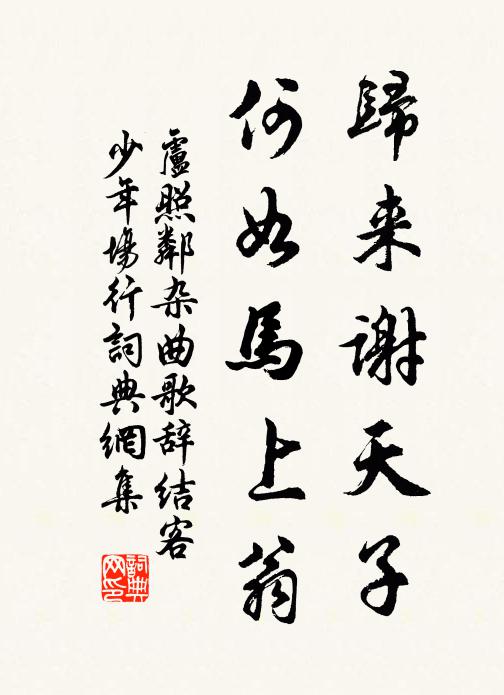 歸来謝天子
何如馬上翁
盧照鄰杂曲歌辞结客
少年場行詞典網集
詞典
网印